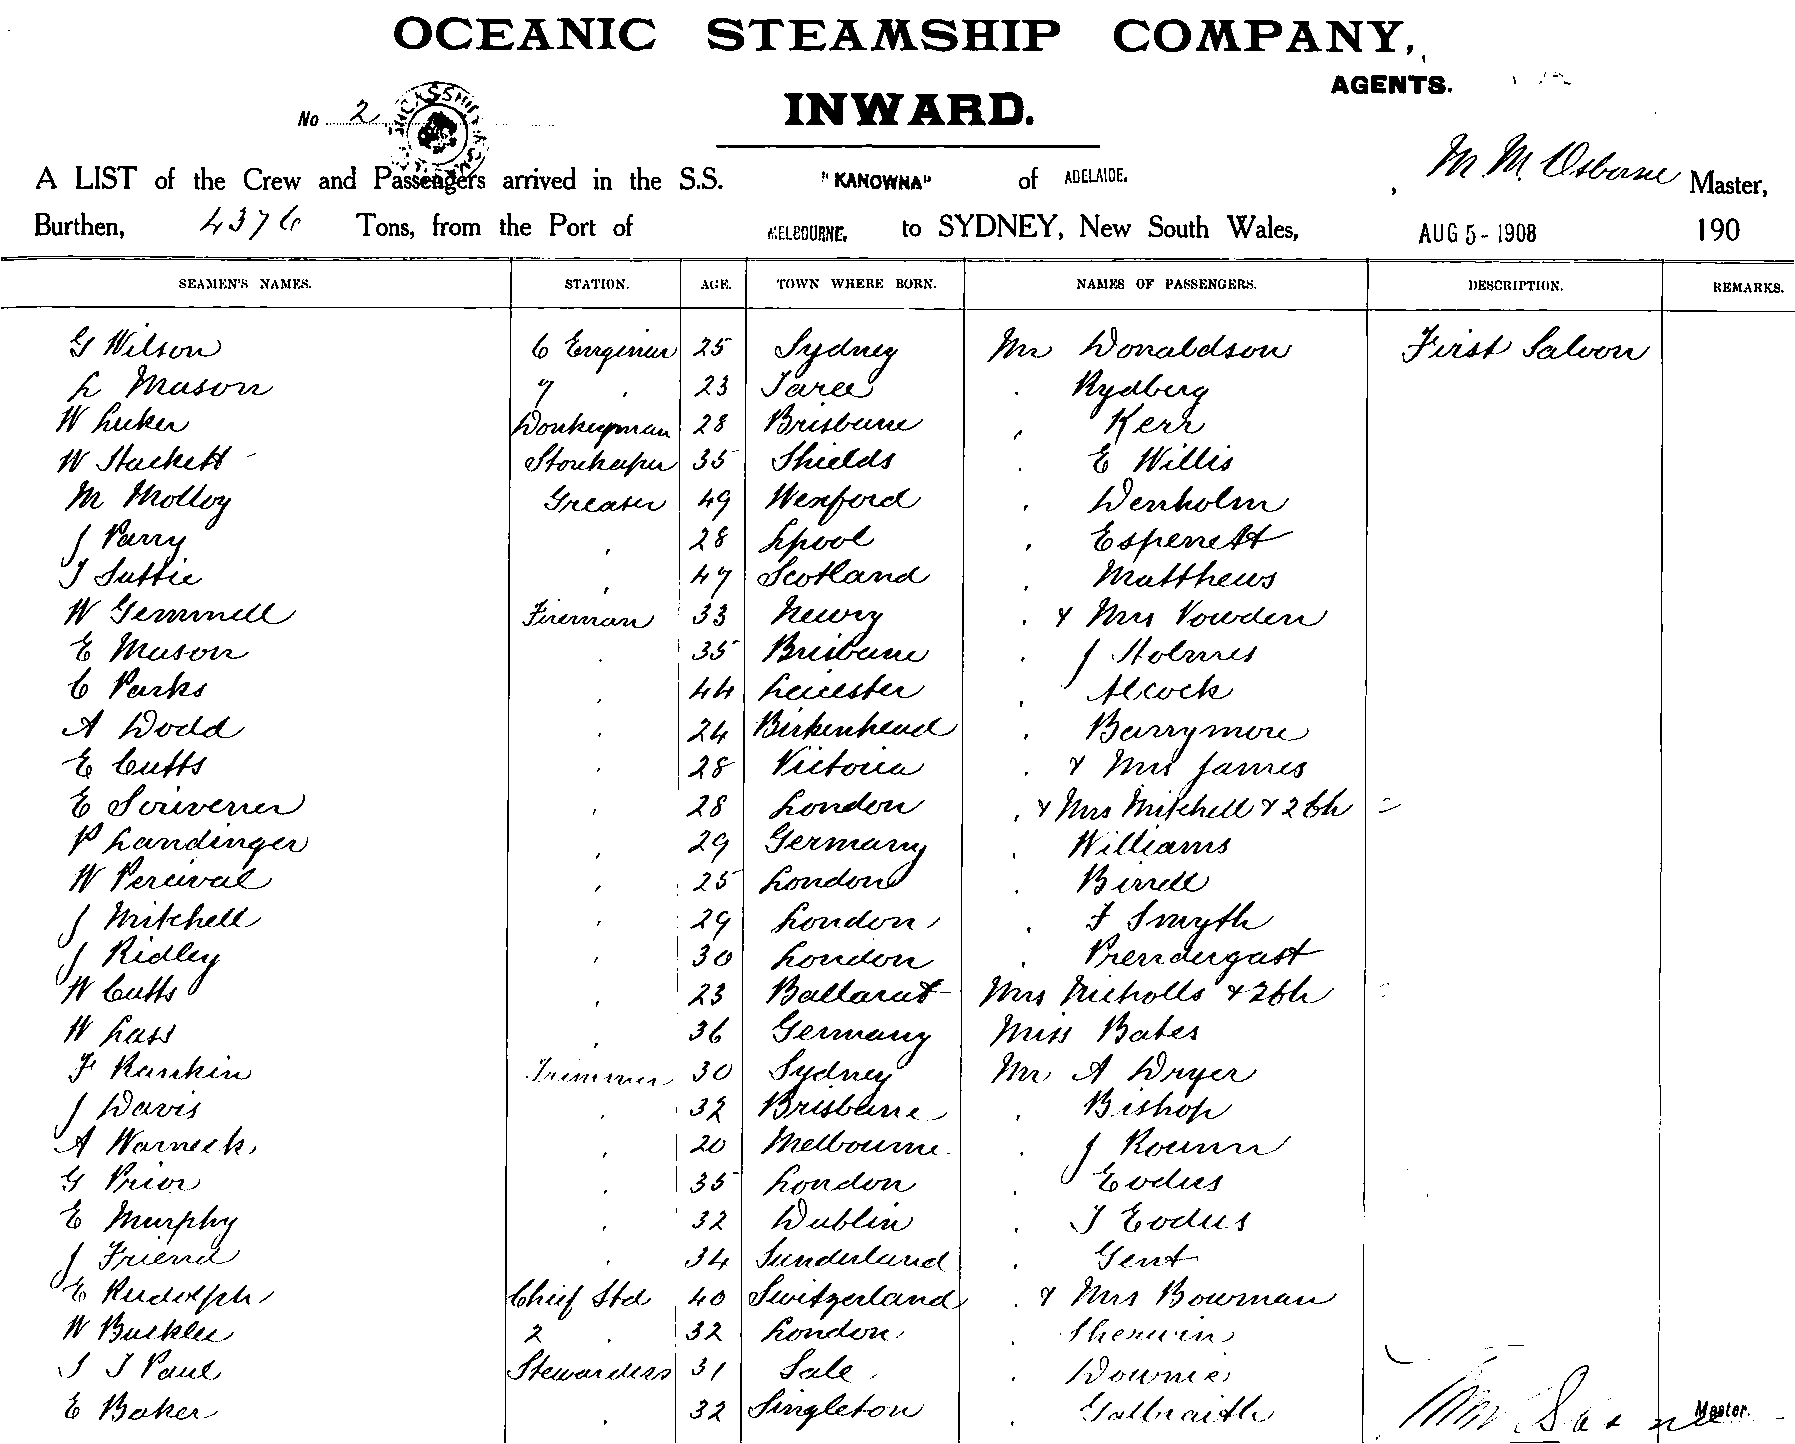 OCEANIC STEAMSHIP COMPANY,
AGENTS.
No 2
INWARD.
A LIST of the Crew and Passengers arrived in the S.S. "KANOWNA" of ADELAIDE. , M M. Osborne Master,
Burthen, 4376 Tons, from the Port of MELBOURNE. to SYDNEY, New South Wales, AUG 5 - 1908 190
SEAMEN'S NAMES. STATION. AGE. TOWN WHERE BORN. NAMES OF PASSENGERS. DESCRIPTION. REMARKS.
G Wilson C Engineer 25 Sydney Mr Donaldson First Saloon
L Mason 7 " 23 Taree " Rydberg
W Luker Donkeyman 28 Brisbane " Kerr
W Stackett Storekeeper 35 Shields " E Willis
M Molloy Greaser 49 Wexford " Denholm
J Parry " 28 Lpool " Espenett
J Suttie " 47 Scotland " Matthews
W Gemmell Fireman 33 Newry " & Mrs Vowden
E Mason " 35 Brisbane " J Holmes
C Parks " 44 Leicester " Alcock
A Dodd " 24 Birkenhead " Barrymore
E Cutts " 28 Victoria " & Mrs James
E Scrivener " 28 London " & Mrs Mitchell & 2 Ch
P Landinger " 29 Germany " Williams
W Percival " 25 London " Birrell
J Mitchell " 29 London " F Smyth
J Ridley " 30 London " Prendergast
W Cutts " 23 Ballarat Mrs Nicholls & 2 Ch
W Lass " 36 Germany Miss Bates
F Rankin Trimmer 30 Sydney Mr A Dryer
J Davis " 32 Brisbane " Bishop
A Warneck " 20 Melbourne " J
G Prior " 35 London " Eodus
E Murphy " 32 Dublin " J Eodus
J Friend " 34 Sunderland " Gent
E Rudolph Chief Std 40 Switzerland " & Mrs Bowman
W Bucklee 2 " 32 London " Sherwin
S J Paul Stewardess 31 Sale " Downie
E Baker " 32 Singleton " Galbraith
Master.